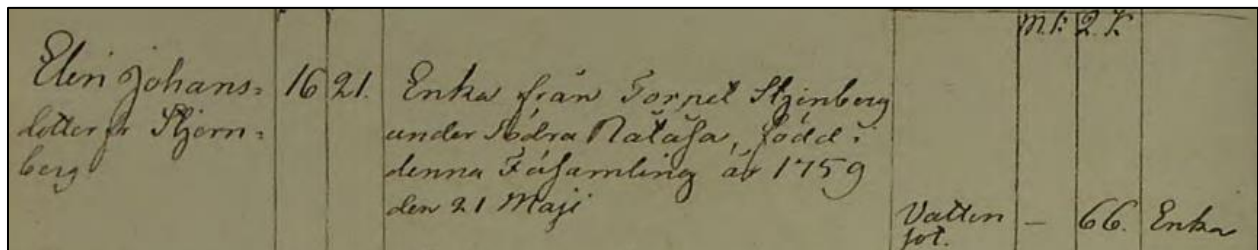 M.k. Q.k.
Elin Johans=
dotter fr Stjern=
berg
16 21.
Enka från Torpet Stjernberg
under Södra Råtåsa, född i
denna Församling år 1759
den 21 Maji
Vatten
sot.
— 66. Enka